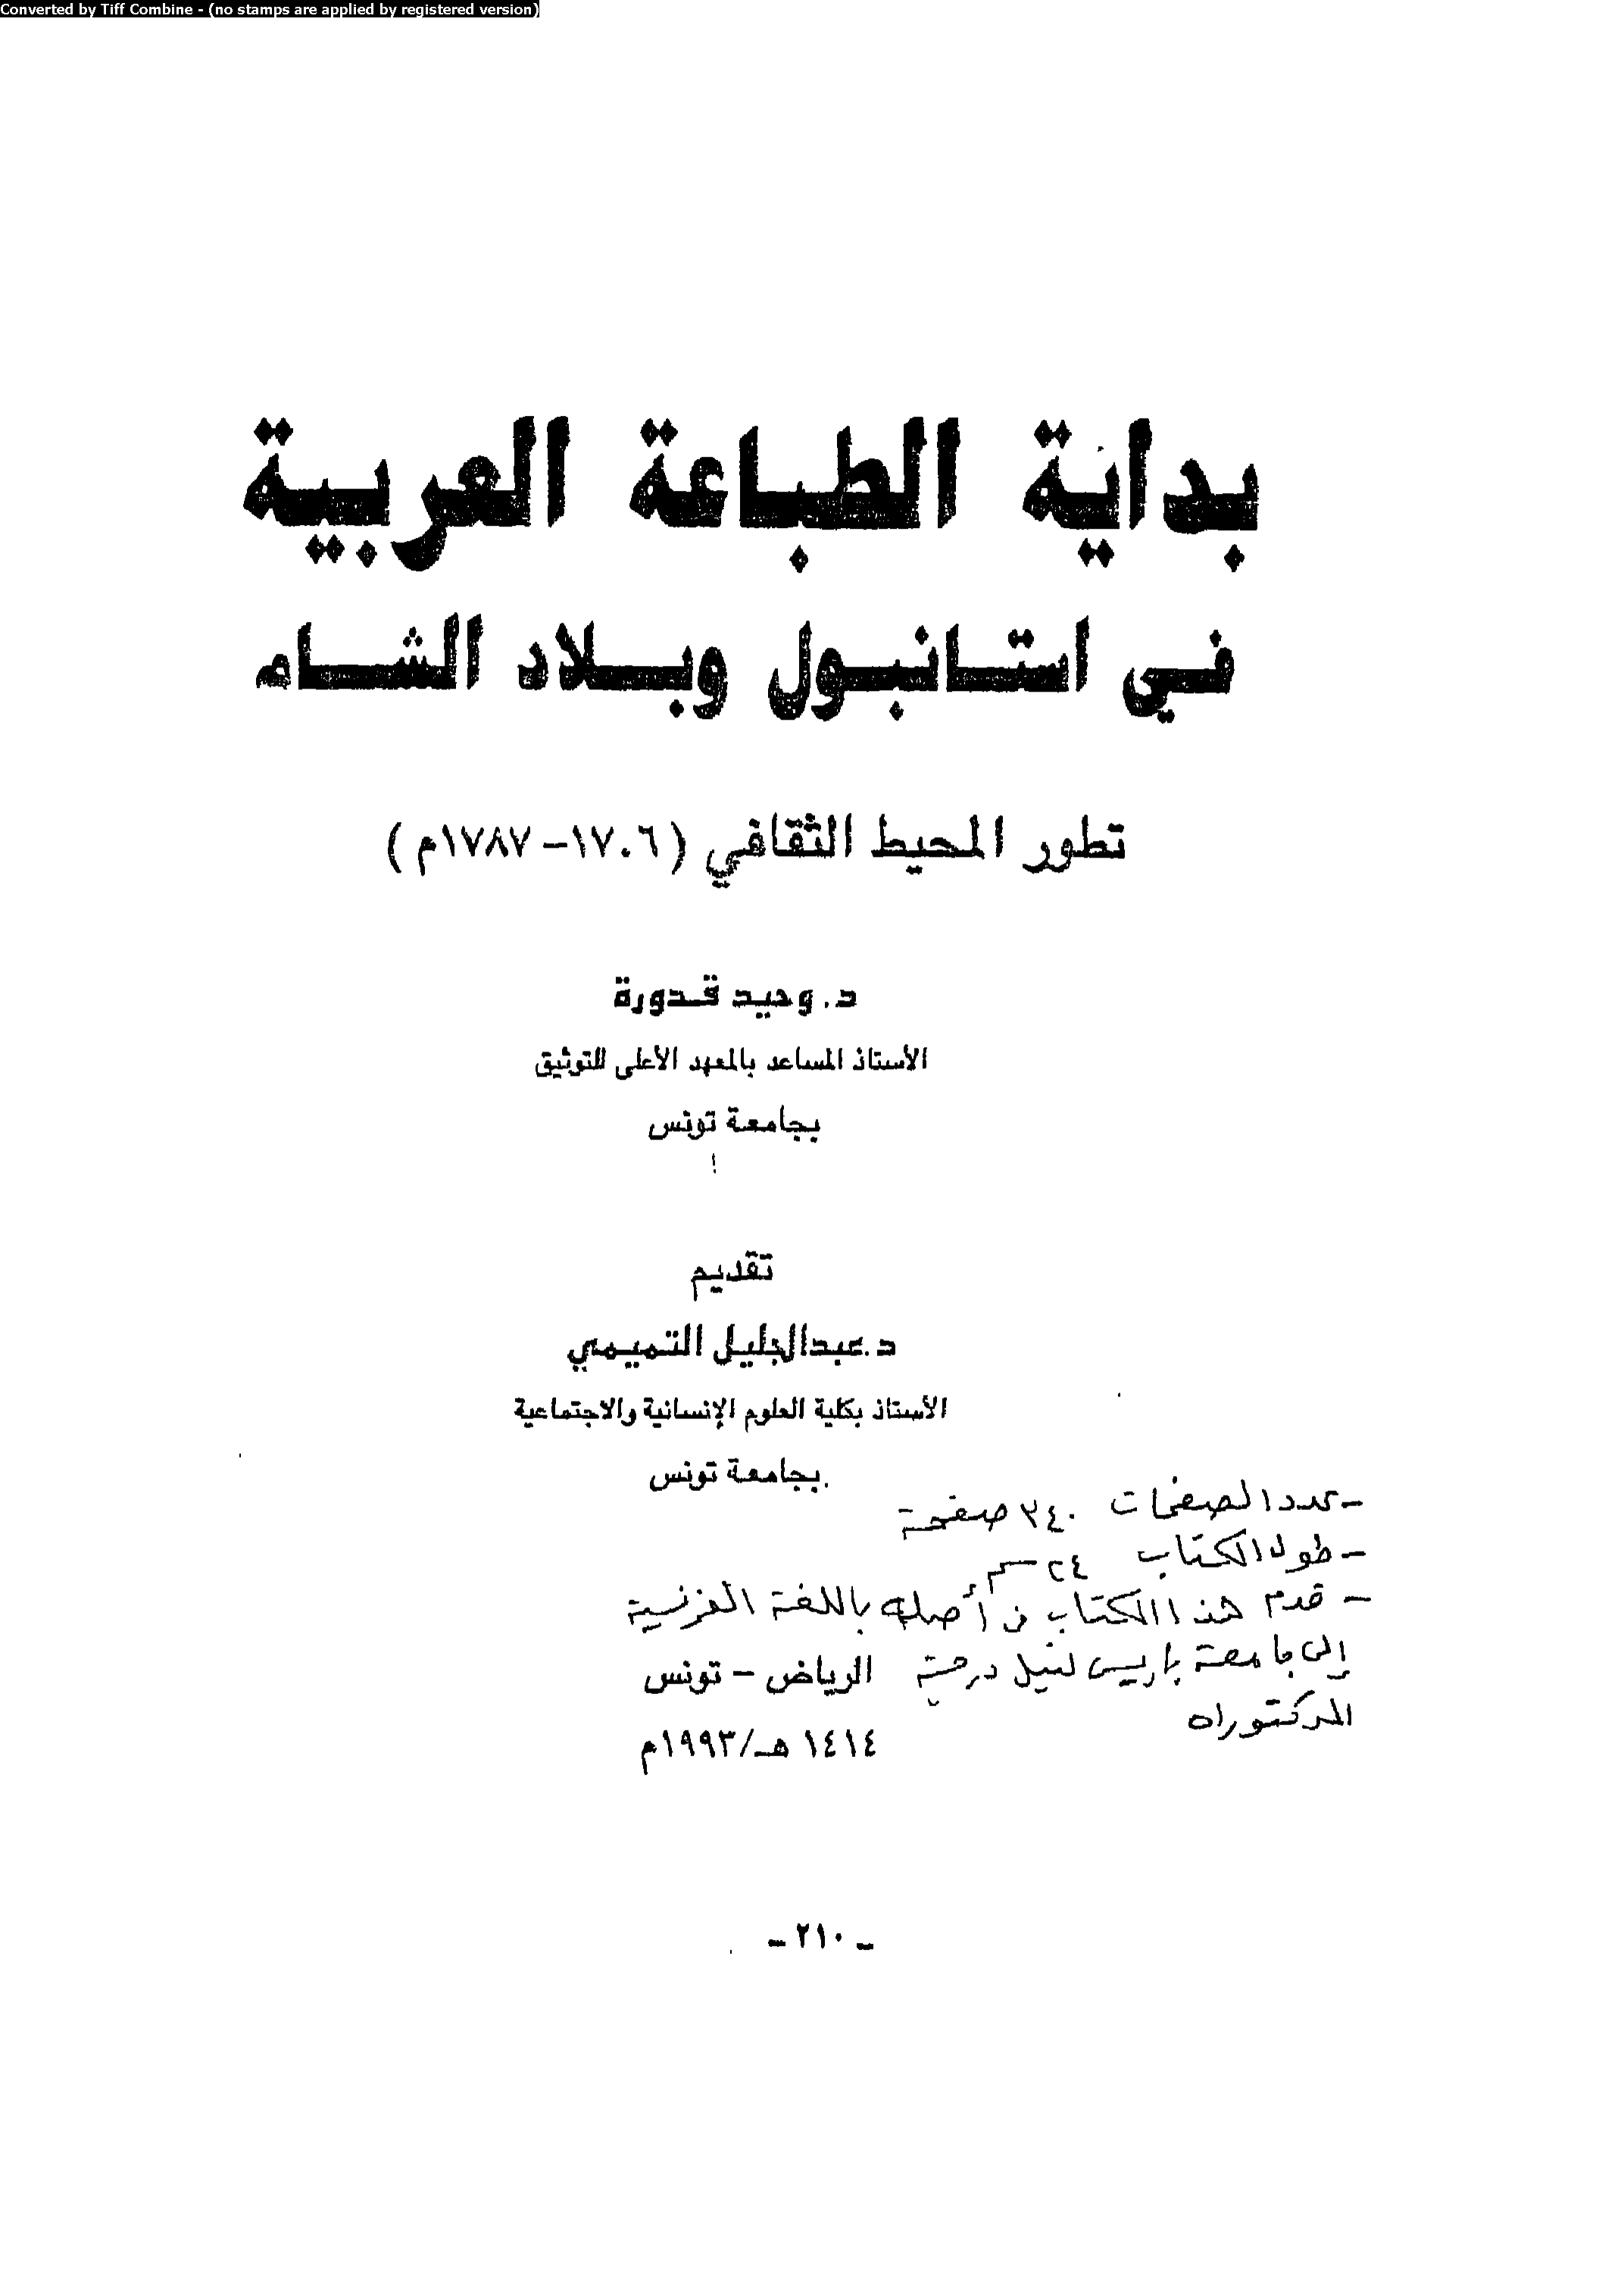 Converted by Tiff Combine - (no stamps are applied by registered version)
بداية الطباعة العربية
في استانبول وبلاد الشام
تطور المحيط الثقافي (١٧٠٦-١٧٨٧م)
د. وحيد قدورة
الأستاذ المساعد بالمعهد الأعلى للتوثيق
بجامعة تونس
تقديم
د.عبدالجليل التميمي
الأستاذ بكلية العلوم الإنسانية والاجتماعية
بجامعة تونس
- عدد الصفحات ٣٤٠ صفحة
- طول الكتاب ٢٤ سم
- قدم هذا الكتاب في أصله باللغة الفرنسية
إلى جامعة باريس لنيل درجة
الدكتوراه
الرياض - تونس
١٤١٤ هـ/١٩٩٣م
- ٢١٠ -